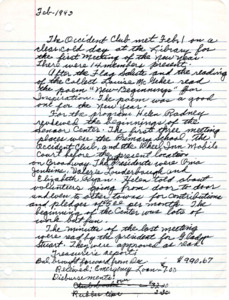 Feb-1993
The Occident Club met Feb 1 on a
clear cold day at the Library for
the first meeting of the new year.
There were 14 members present.
After the Flag Salute and the reading
of the Collect Louise McGehee read
the poem "New Beginnings" for
Inspiration. The poem was a good
one for the new year.
For the program Helen Rodney
reviewed the beginnings of the
Senior Center. The first three meeting
places were the Primary School, The
Occident Club, and the Wheel Inn Mobile
Court before the present location
on Broadway. The presidents were Opa
Jenkins, Valerie Lauderbaugh and
Elizabeth Ryan. Helen told about
volunteers going from door to door
and even to other towns for contributions
and pledges of $2 per month. The
beginning of the Center was lots of
work but fun.
The minutes of the last meeting
were read by the president for Gladys
Stuart. They were approved as read.
Treasurer's report:
Bal. brought forward from Dec $990.67
Received: Emergency Loan 7.00
Disbursements:
Rubber tips 2.00